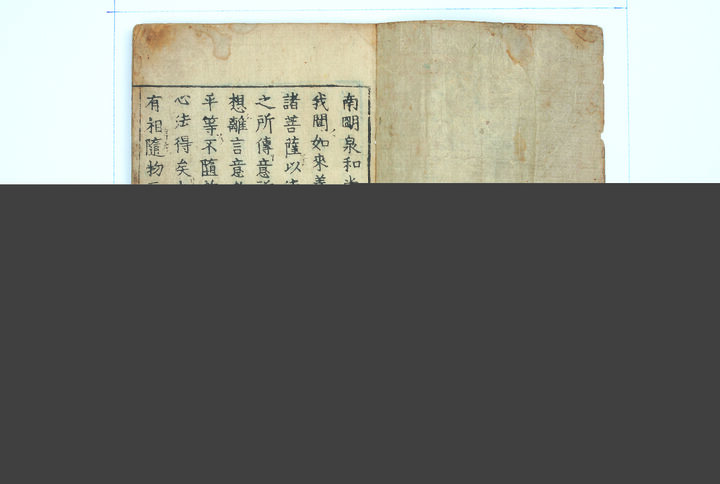 南明泉和尚
我聞如來善
諸菩薩以
之所傳意
想離言意
平等不隨
心法得矣
有相隨物